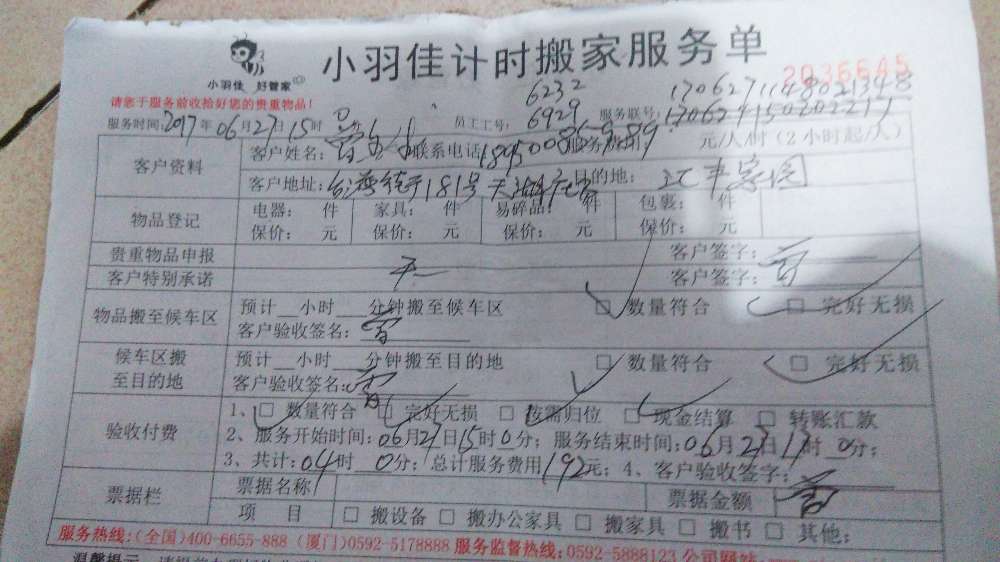 小羽佳计时搬家服务单
小羽佳 好管家
2036645
请您于服务前收捡好您的贵重物品！
服务时间：2017年06月27日15时 员工工号：6232 6929 服务联号：
客户资料 客户姓名： 联系电话 元/人/时（2小时起/人）
客户地址： 181号 目的地：
物品登记 电器： 件 家具： 件 易碎品： 件 包裹： 件
保价： 元 保价： 元 保价： 元 保价： 元
贵重物品申报 客户签字：
客户特别承诺 客户签字：
物品搬至候车区 预计__小时___分钟搬至候车区 □ 数量符合 □ 完好无损
客户验收签名：
候车区搬至目的地 预计__小时___分钟搬至目的地 □ 数量符合 □ 完好无损
客户验收签名：
验收付费 1、□ 数量符合 □ 完好无损 □ 按需归位 □ 现金结算 □ 转账汇款
2、服务开始时间：06月27日15时0分；服务结束时间：06月27日17时0分；
3、共计：04时 0分；总计服务费用192元；4、客户验收签字：
票据栏 票据名称 票据金额
项 目 □ 搬设备 □ 搬办公家具 □ 搬家具 □ 搬书 □ 其他：
服务热线：（全国）400-6655-888（厦门）0592-5178888 服务监督热线：0592-5888123 公司网站：
温馨提示